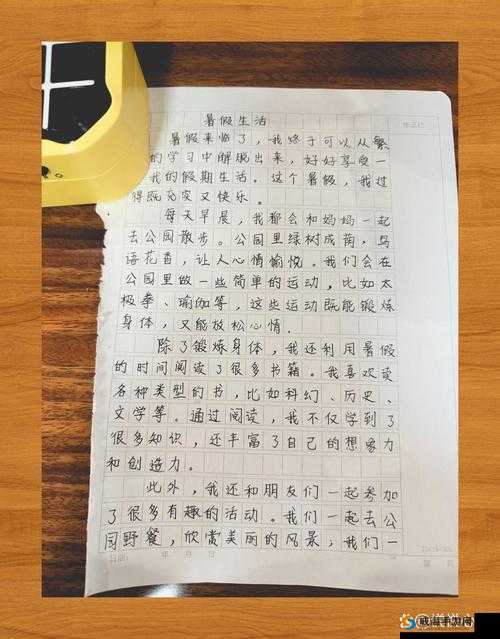 暑假生活
暑假来临了，我终于可以从繁
的学习中解脱出来，好好享受一
我的假期生活。这个暑假，我过
得既充实又快乐。
每天早晨，我都会和妈妈一起
去公园散步。公园里绿树成荫，鸟
语花香，让人心情愉悦。我们会在
公园里做一些简单的运动，比如太
极拳、瑜伽等，这些运动既能锻炼
身体，又能放松心情.
除了锻炼身体，我还利用暑假
的时间阅读了很多书籍。我喜欢读
各种类型的书，比如科幻、历史、
文学等。通过阅读，我不仅学到了
很多知识，还丰富了自己的想象力
和创造力。
此外，我还和朋友们一起参加
了很多有趣的活动。我们一起去公
园野餐，欣赏美丽的风景，我们一
日期： 年 月 日